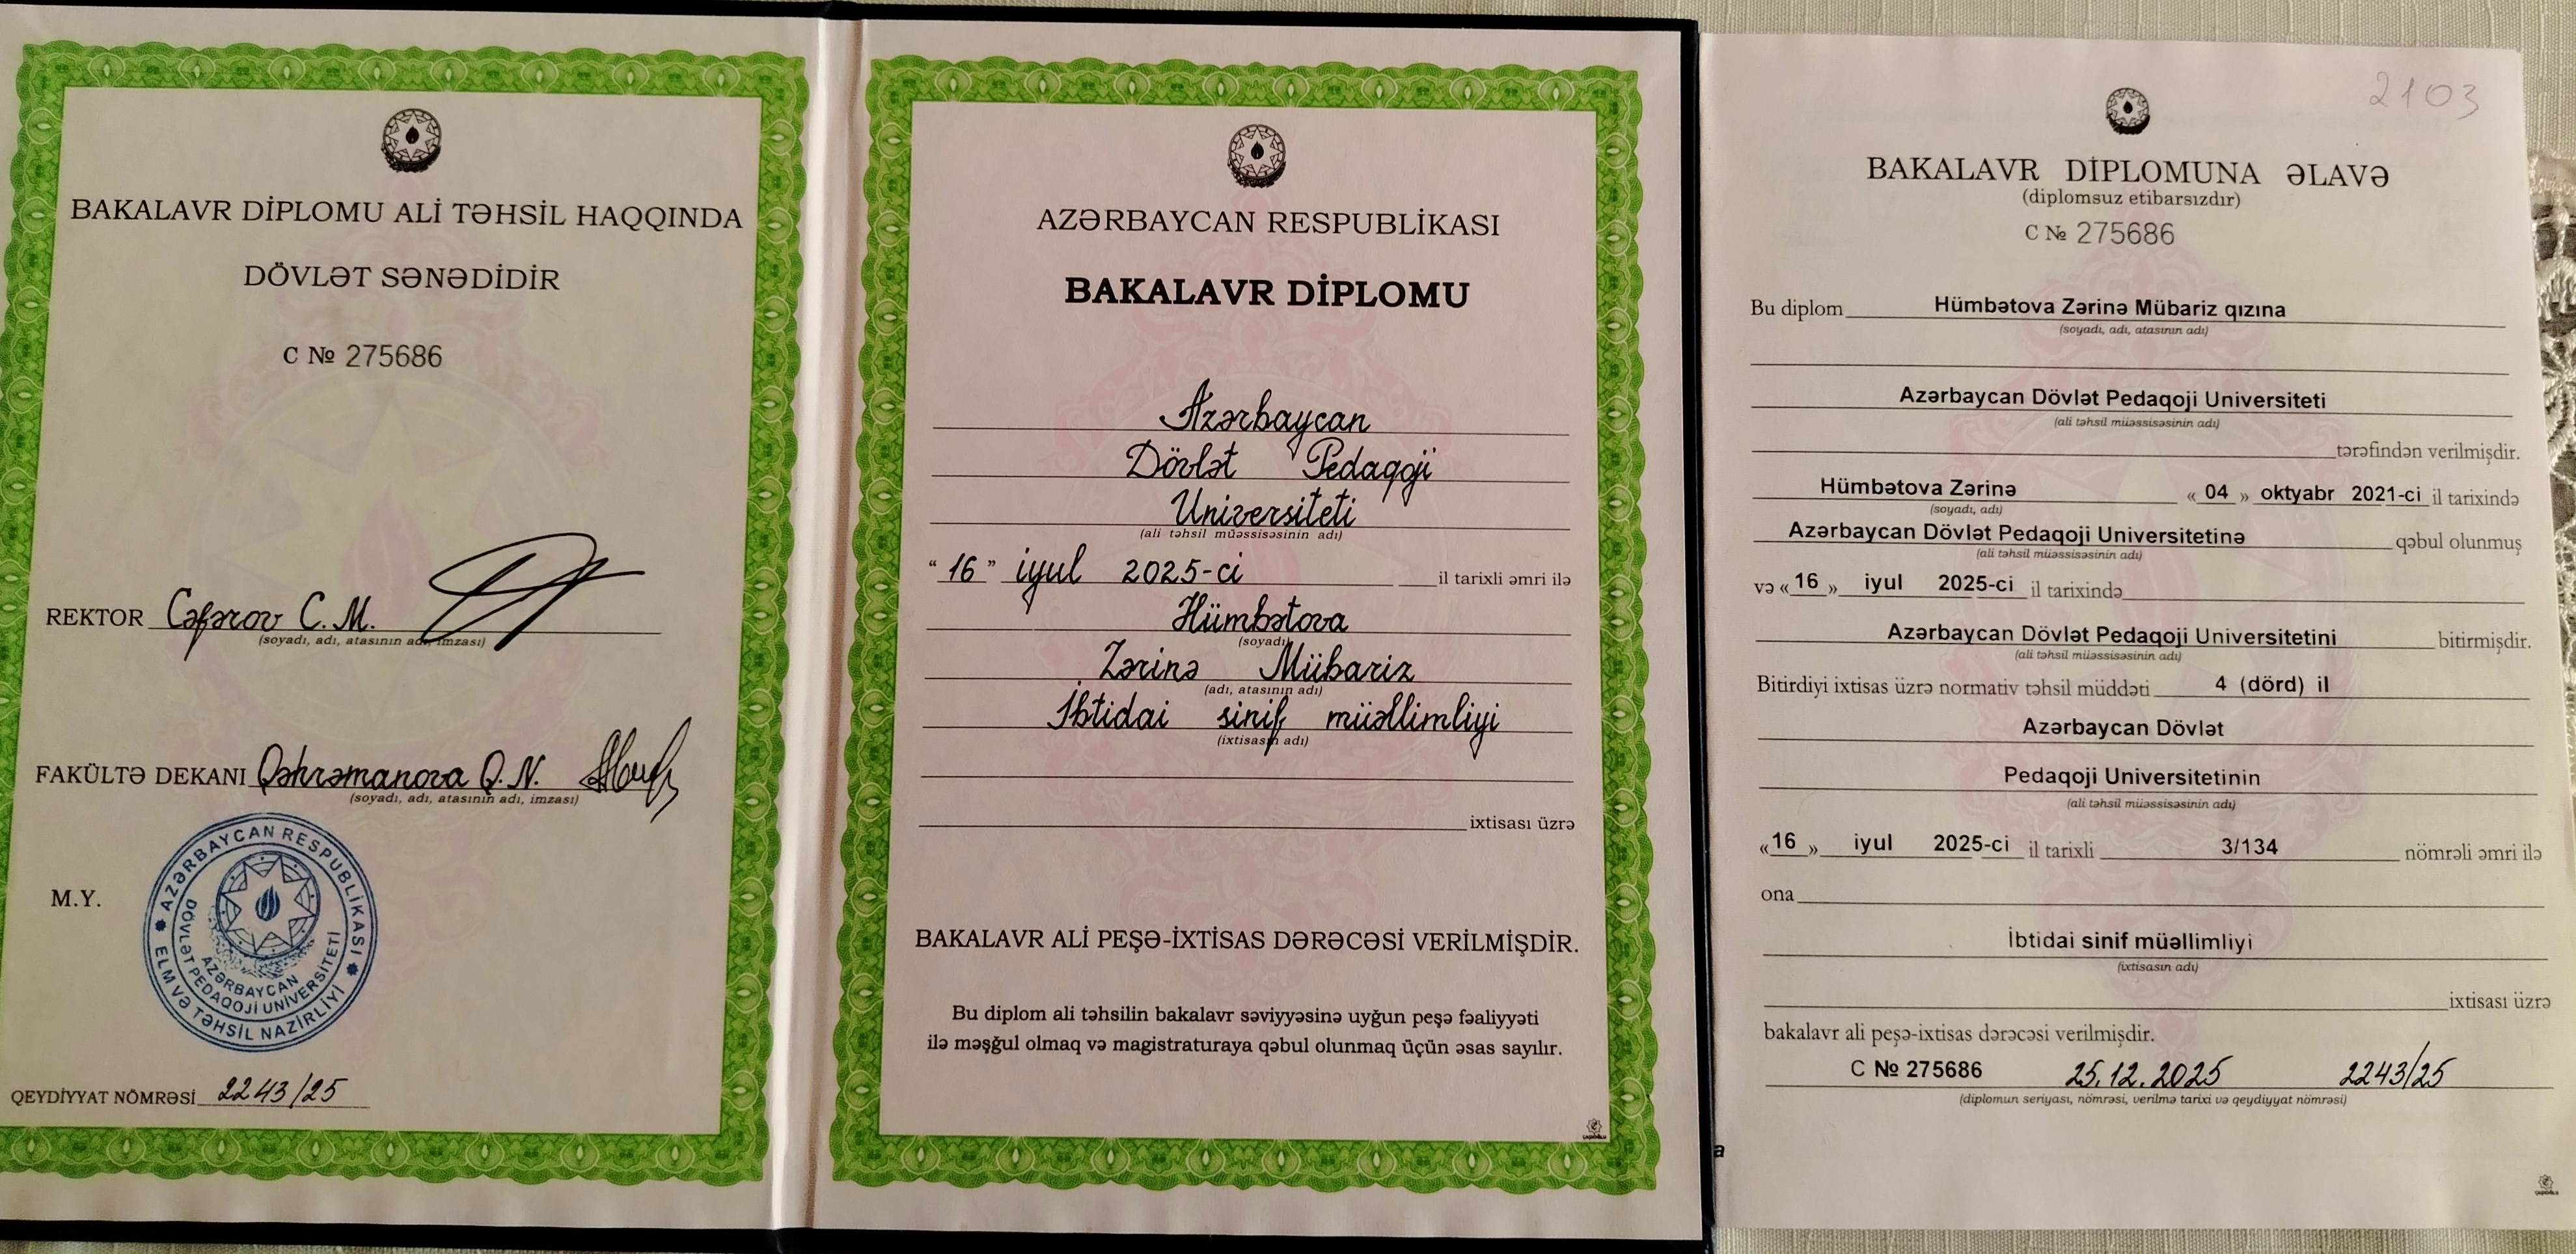 BAKALAVR DİPLOMU ALİ TƏHSİL HAQQINDA
DÖVLƏT SƏNƏDİDİR
C № 275686
REKTOR Cəfərov C.M.
(soyadı, adı, atasının adı, imzası)
FAKÜLTƏ DEKANI Qəhrəmanova Q.N.
(soyadı, adı, atasının adı, imzası)
M.Y.
AZƏRBAYCAN RESPUBLİKASI
ELM VƏ TƏHSİL NAZİRLİYİ
AZƏRBAYCAN
DÖVLƏT PEDAQOJİ UNİVERSİTETİ
QEYDİYYAT NÖMRƏSİ 2243/25
AZƏRBAYCAN RESPUBLİKASI
BAKALAVR DİPLOMU
Azərbaycan
Dövlət Pedaqoji
Universiteti
(ali təhsil müəssisəsinin adı)
"16" iyul 2025-ci il tarixli əmri ilə
Hümbətova
(soyadı)
Zərinə Mübariz
(adı, atasının adı)
İbtidai sinif müəllimliyi
(ixtisasın adı)
ixtisası üzrə
BAKALAVR ALİ PEŞƏ-İXTİSAS DƏRƏCƏSİ VERİLMİŞDİR.
Bu diplom ali təhsilin bakalavr səviyyəsinə uyğun peşə fəaliyyəti
ilə məşğul olmaq və magistraturaya qəbul olunmaq üçün əsas sayılır.
2103
BAKALAVR DİPLOMUNA ƏLAVƏ
(diplomsuz etibarsızdır)
C № 275686
Bu diplom Hümbətova Zərinə Mübariz qızına
(soyadı, adı, atasının adı)
Azərbaycan Dövlət Pedaqoji Universiteti
(ali təhsil müəssisəsinin adı)
tərəfindən verilmişdir.
Hümbətova Zərinə « 04 » oktyabr 2021-ci il tarixində
(soyadı, adı)
Azərbaycan Dövlət Pedaqoji Universitetinə qəbul olunmuş
(ali təhsil müəssisəsinin adı)
və « 16 » iyul 2025-ci il tarixində
Azərbaycan Dövlət Pedaqoji Universitetini bitirmişdir.
(ali təhsil müəssisəsinin adı)
Bitirdiyi ixtisas üzrə normativ təhsil müddəti 4 (dörd) il
Azərbaycan Dövlət
Pedaqoji Universitetinin
(ali təhsil müəssisəsinin adı)
« 16 » iyul 2025-ci il tarixli 3/134 nömrəli əmri ilə
ona
İbtidai sinif müəllimliyi
(ixtisasın adı)
ixtisası üzrə
bakalavr ali peşə-ixtisas dərəcəsi verilmişdir.
C № 275686 25.12.2025 2243/25
(diplomun seriyası, nömrəsi, verilmə tarixi və qeydiyyat nömrəsi)